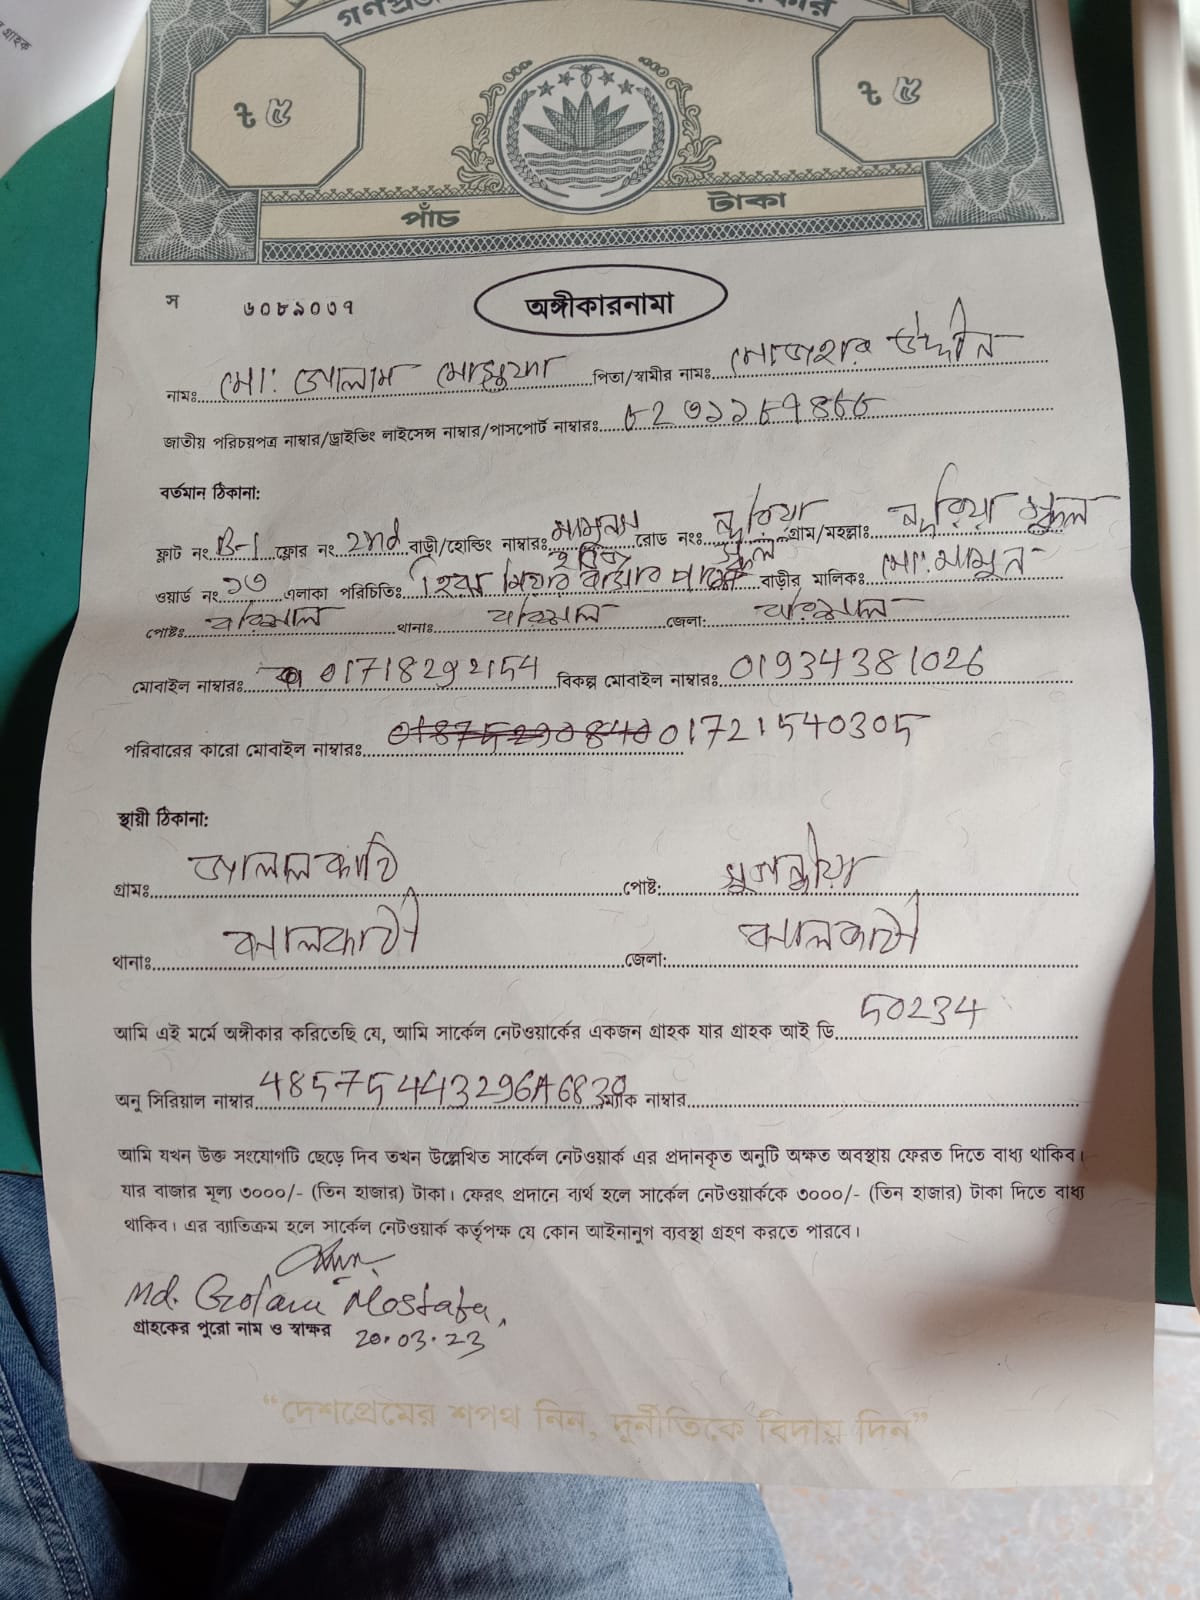 গ্রাহক
৳ ৫
৳ ৫
পাঁচ টাকা
স ৬০৮৯০৩৭
অঙ্গীকারনামা
নামঃ মো: গোলাম মোস্তফা পিতা/স্বামীর নামঃ মোজহার উদ্দীন
জাতীয় পরিচয়পত্র নাম্বার/ড্রাইভিং লাইসেন্স নাম্বার/পাসপোর্ট নাম্বারঃ
বর্তমান ঠিকানা:
ফ্লাট নং B-1 ফ্লোর নং 2nd বাড়ী/হোল্ডিং নাম্বারঃ রোড নংঃ নূরিয়া স্কুল গ্রাম/মহল্লাঃ নূরিয়া স্কুল
ওয়ার্ড নং ১৩ এলাকা পরিচিতিঃ মিয়ার বাসার পাশে বাড়ীর মালিকঃ মো: মামুন
পোষ্টঃ বরিশাল থানাঃ বরিশাল জেলা: বরিশাল
মোবাইল নাম্বারঃ 01718292154 বিকল্প মোবাইল নাম্বারঃ 01934381026
পরিবারের কারো মোবাইল নাম্বারঃ 01721540305
স্থায়ী ঠিকানা:
গ্রামঃ পোষ্ট:
থানাঃ ঝালকাঠী জেলা: ঝালকাঠী
আমি এই মর্মে অঙ্গীকার করিতেছি যে, আমি সার্কেল নেটওয়ার্কের একজন গ্রাহক যার গ্রাহক আই ডি 50234
অনু সিরিয়াল নাম্বার 485754443296A6830 ম্যাক নাম্বার
আমি যখন উক্ত সংযোগটি ছেড়ে দিব তখন উল্লেখিত সার্কেল নেটওয়ার্ক এর প্রদানকৃত অনুটি অক্ষত অবস্থায় ফেরত দিতে বাধ্য থাকিব।
যার বাজার মূল্য ৩০০০/- (তিন হাজার) টাকা। ফেরৎ প্রদানে ব্যর্থ হলে সার্কেল নেটওয়ার্ককে ৩০০০/- (তিন হাজার) টাকা দিতে বাধ্য
থাকিব। এর ব্যাতিক্রম হলে সার্কেল নেটওয়ার্ক কর্তৃপক্ষ যে কোন আইনানুগ ব্যবস্থা গ্রহণ করতে পারবে।
Md. Golam Mostafa
গ্রাহকের পুরো নাম ও স্বাক্ষর 20.03.23
“দেশপ্রেমের শপথ নিন, দুর্নীতিকে বিদায় দিন”